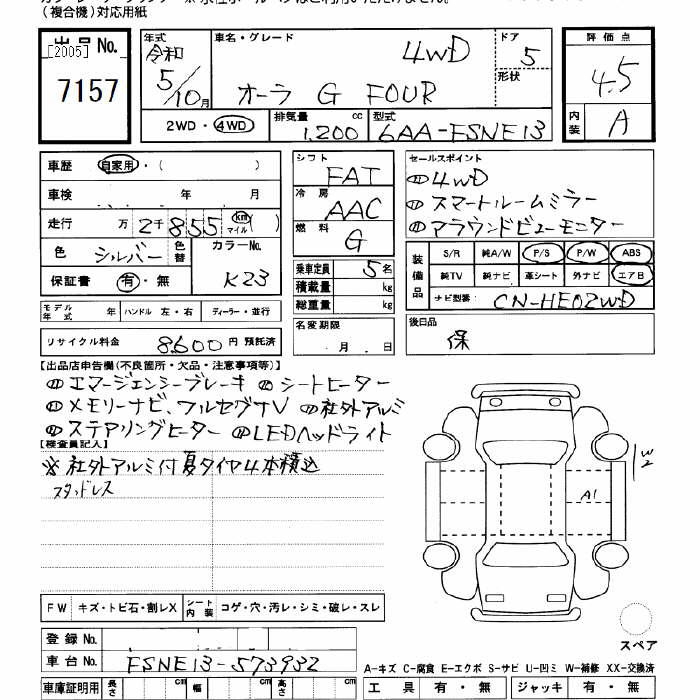 （複合機）対応用紙
出品No.
[2005]
7157
年式 令和 5/10月
車名・グレード 4WD
オーラ G FOUR
ドア 5
形状
評価点
4.5
内装 A
2WD・4WD
排気量 1,200 cc
型式 6AA-FSNE13
車歴 自家用・（ ）
車検 年 月
走行 万 2千855 km マイル( )
色 シルバー 色替
カラーNo. K23
保証書 有・無
シフト FAT
冷房 AAC
燃料 G
乗車定員 5名
積載量 kg
総重量 kg
セールスポイント
①4WD
②スマートルームミラー
③アラウンドビューモニター
装備品 S/R 純A/W P/S P/W ABS
純TV 純ナビ 革シート 外ナビ エアB
ナビ型番 CN-HE02WD
モデル年式 年 ハンドル 左・右 ディーラー・並行
リサイクル料金 8,600 円 預託済
名変期限 月 日
後日品 保
【出品店申告欄(不良箇所・欠品・注意事項等)】
エマージェンシーブレーキ シートヒーター
メモリーナビ、フルセグTV 社外アルミ
ステアリングヒーター LEDヘッドライト
【検査員記入】
※社外アルミ付夏タイヤ4本積込
スタッドレス
W2
A1
FW キズ・トビ石・割レX シート内装 コゲ・穴・汚レ・シミ・破レ・スレ
登録No.
車台No. FSNE13-573932
スペア
A-キズ C-腐食 E-エクボ S-サビ U-凹ミ W-補修 XX-交換済
車庫証明用 長さ cm 幅 cm 高さ cm
工具 有・無 ジャッキ 有・無